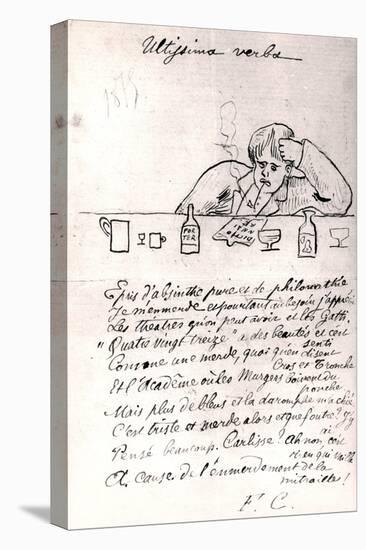 Ultissima verba
1875
POR
TER
Epris d'absinthe pure et de philomathie
Je m'emmerde et pourtant au besoin j'apprécie
Les théâtres qu'on peut avoir et les Gatti.
"Quatre vingt treize" a des beautés et c'est
senti
Comme une merde, quoi qu'en disent
Cros et Tronche
Et l'Académie où les Murgers boivent du
ponche.
Mais plus de bleus et la daromphe m'a chié.
C'est triste et merde alors et que foutre? J'y
ai
Pensé beaucoup. Carlisse? Ah non, c'est
rien qui vaille
A cause de l'emmerdement de la
mitraille!
F. C.